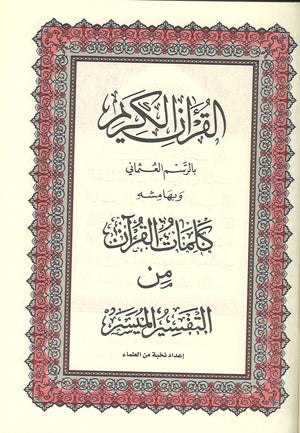 القرآن الكريم
بالرسم العثماني
وبهامشه
كلمات القرآن
من
التفسير الميسر
إعداد نخبة من العلماء